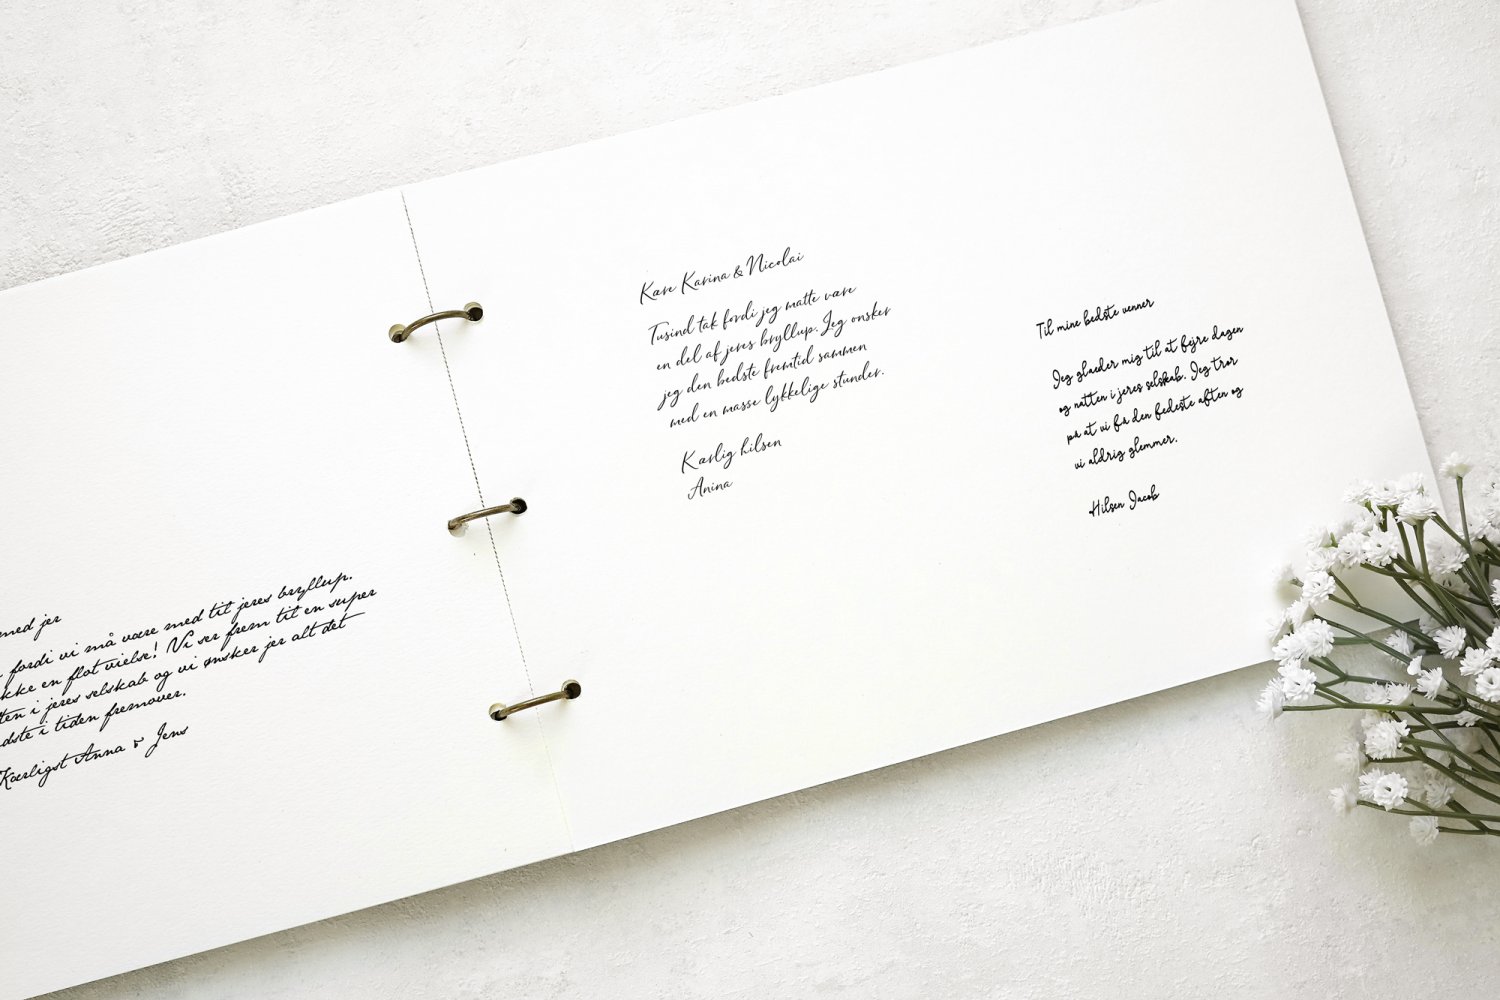 med jer
fordi vi må være med til jeres bryllup.
en flot vielse! Vi ser frem til en super
i jeres selskab og vi ønsker jer alt det
i tiden fremover.
Kærligst Anna & Jens
Kære Karina & Nicolai
Tusind tak fordi jeg matte være
en del af jeres bryllup. Jeg onsker
jeg den bedste fremtid sammen
med en masse lykkelige stunder.
Kærlig hilsen
Anina
Til mine bedste venner
Jeg glaeder mig til at fejre dagen
og natten i jeres selskab. Jeg tror
på at vi få den fedeste aften og
vi aldrig glemmer.
Hilsen Jacob